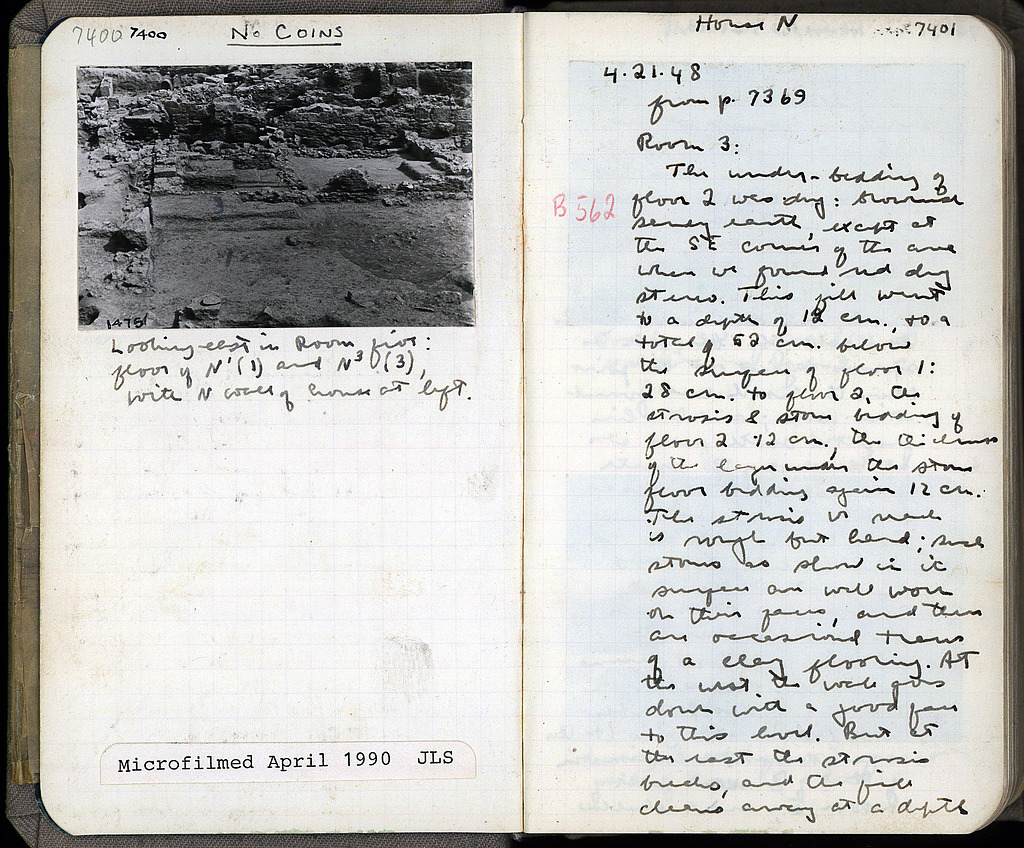 7400 7400 No COINS
14751
Looking east in Room five:
floor of N'(1) and N3 (3),
with N wall of house at left.
Microfilmed April 1990 JLS
House N 7401
4.21.48
from p. 7369
Room 3:
The under-bedding of
B 562
floor 2 was dug: brownish
sandy earth, except at
the SE corner of the area
where we found red dug
stereo. This fill went
to a depth of 12 cm., to a
total of 52 cm. below
the surface of floor 1:
28 cm. to floor 2, the
strosis & stone bedding of
floor 2 12 cm., the thickness
of the layer under the stone
floor bedding again 12 cm.
The strosis we reach
is rough but hard; such
stones as show in its
surface are well worn
on their faces, and there
are occasional traces
of a clay flooring. At
the west the wall goes
down with a good face
to this level. But at
the east the strosis
breaks, and the fill
cleans away at a depth